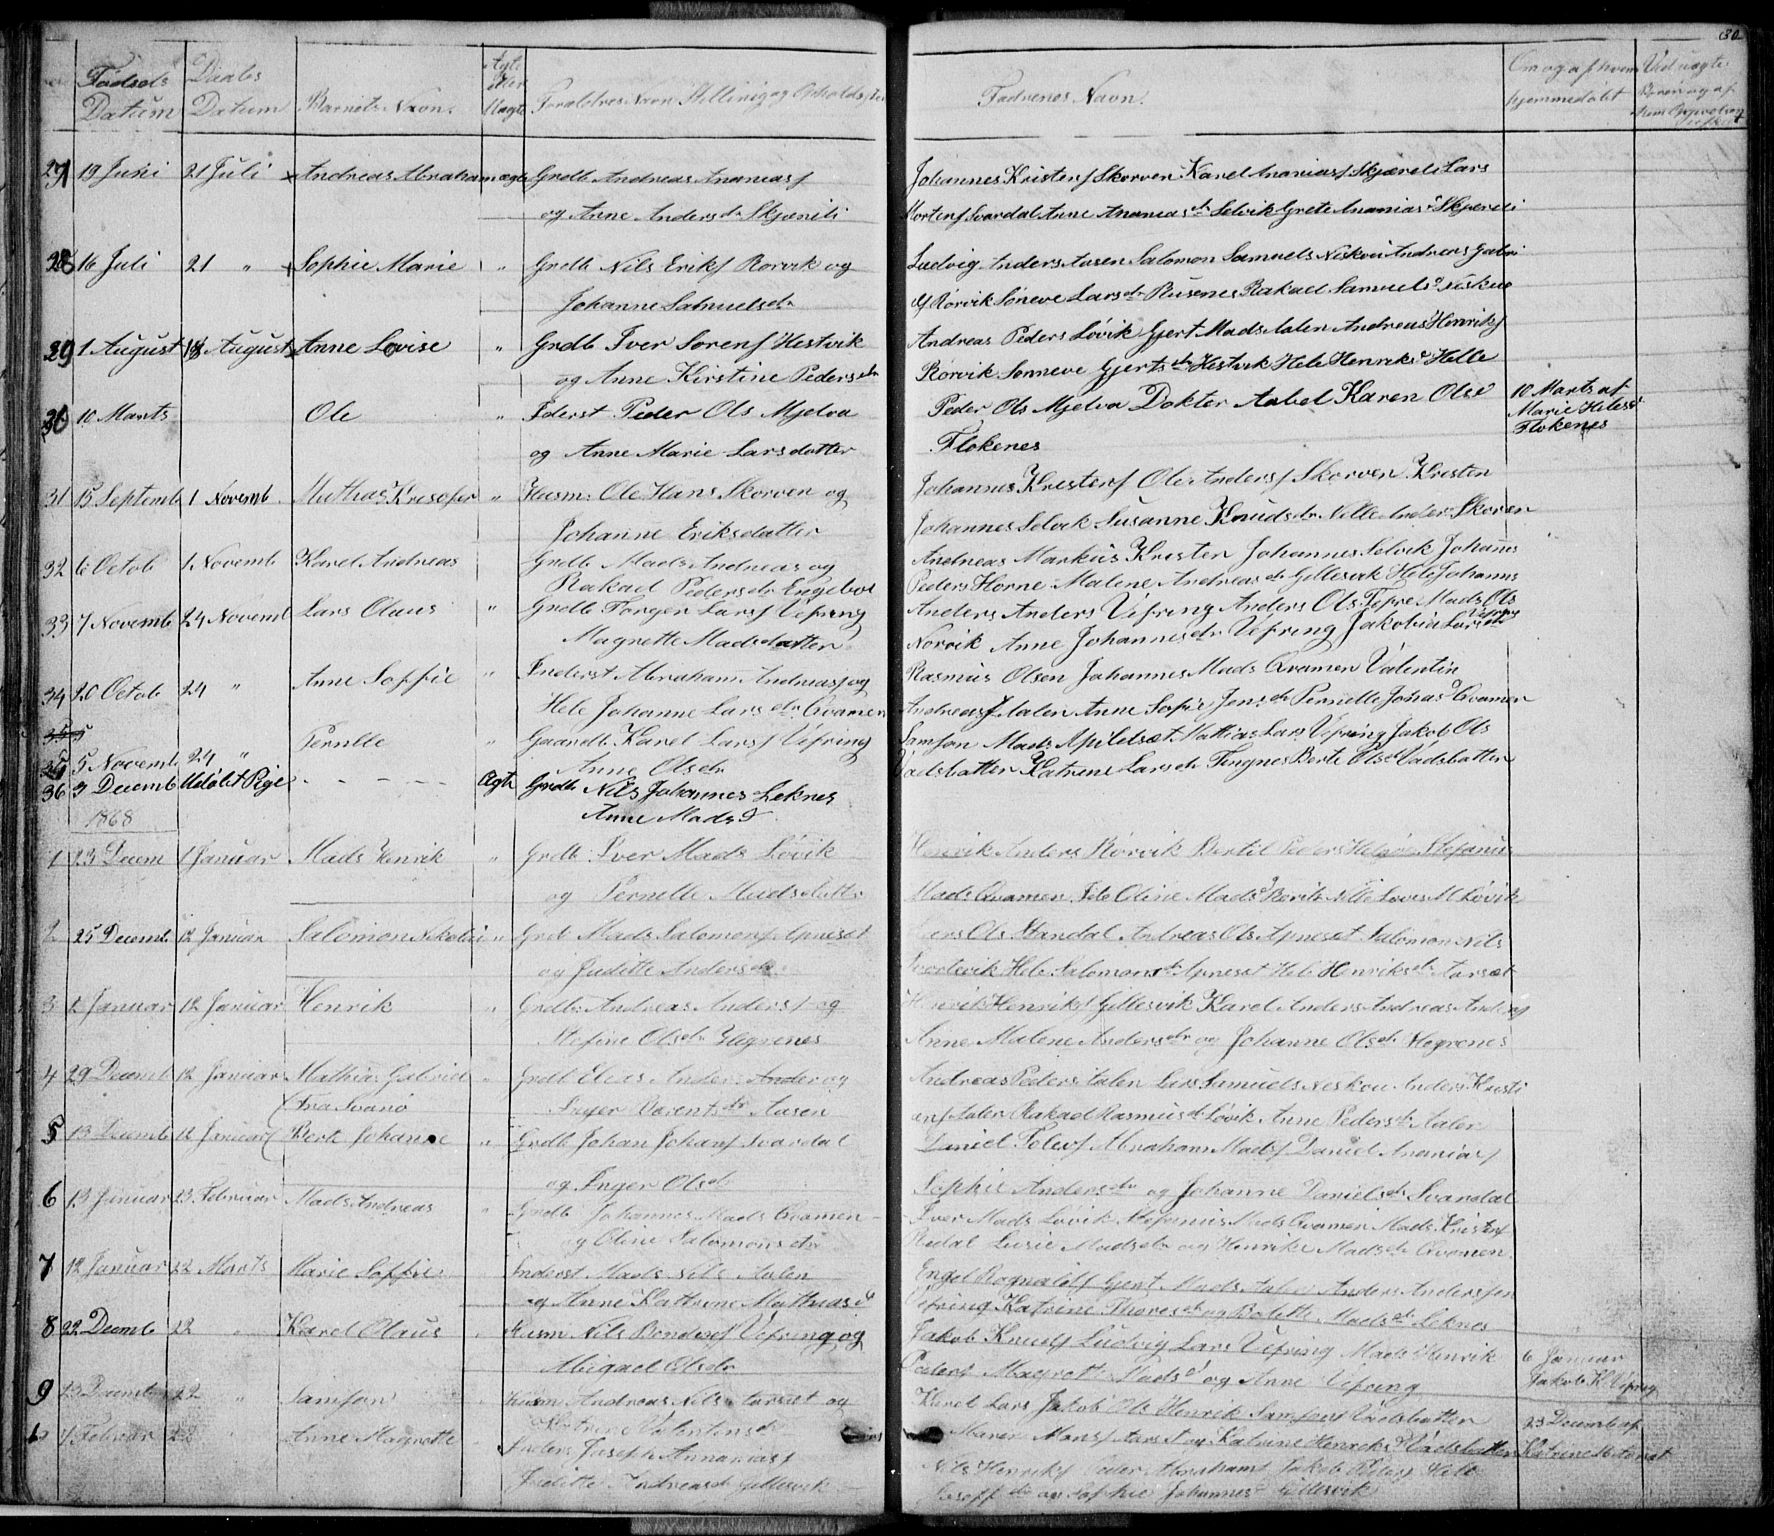 30
Fødsels Datum
Daabs Datum
Barnets Navn.
Ægte eller Uægte
Forældres Navn Stilling og Opholdsted
Fadrenes Navn.
Om og af hvem hjemmedøbt
27 19 Juni 21 Juli Andreas Abraham ægte Grdb Andreas Ananiasf
og Anne Andersdr Skjærili
Johannes Kristenf Skorven Karel Ananiasf Skjæreli Lars
Mortenf Svardal Anne Ananiasdr Selvik Grete Ananias Skjæreli
28 16 Juli 21 " Sophie Marie " Grdb Nils Erikf Rørvik og
Johanne Samuelsdr
Ludvig Anders Aasen Salomon Samuels Neskoie Andreas Gabri
elf Rørvik Søneve Larsdr Rusenes Rakael Samuelsd Neskoie
29 1 August 18 August Anne Lovise " Grdb Iver Sørenf Hestvik
og Anne Kirstine Pedersdr
Andreas Peders Løvik Gjert Mads Aalen Andreas Henrikf
Rørvik Sønneve Gjertsdr Hestvik Hele Henriksd Helle
30 10 Marts Ole " Iderst Peder Ols Mjelva
og Anne Marie Larsdatter
Peder Ols Mjelva Dokter Aabel Karen Olsd
Flokenes
10 Marts af
Marie Helesd
Flokenes
31 15 Septemb 1 Novemb Mathias Kresofer " Husm: Ole Hans Skorven og
Johanne Eriksdatter
Johannes Kristenf Ole Andersf Skorven Kristen
Johannes Selvik Susanne Knudsdr Nille Anders Skorven
32 6 Octob 1 Novemb Karel Andreas Grdb Mads Andreas og
Rakael Pedersdr Engebø
Andreas Markus Kristen Johannes Selvik Johanes
Peders Horne Malene Andreasdr Gillesvik Hele Johanns
33 7 Novemb 24 Novemb Lars Olaus " Grdb Torger Larsf Vefring
Magnette Madsdatter
Anders Anders Vefring Anders Ols Tefre Mads Ols
Norvik Anne Johannesdr Vefring Jakobia Larsdr Vefring
34 20 Octob 24 " Anne Soffie " Inderst Abraham Andreasf og
Hele Johanne Larsdr Qvamen
Rasmus Olsen Johannes Mads Qvamen Valentin
Andreasf Aalen Anne Sofie Jensdr Pernelle Jonasd Qvamen
35 5 Novemb 24 " Pernlle " Gaardb Karel Larsf Vefring
Anne Olsdr
Samson Mads Apilelsæt Mathias Lars Vefring Jakob Ols
Vadsbatter Katrene Larsdr Tingnes Berte Olsd Vadsbatter
36 3 Decemb Udøbt Pige - - - - Ægte Grdb Nils Johannes Leknes
Anne Madsd
1868
1 23 Decem 1 Januar Mads Henrik " Grdb Iver Mads Løvik
og Pernelle Madsdatter
Henrik Anders Rørvik Bertil Peders Stefanus
Mads Qvamen Oline Madsd Nille Lovis M Løvik
2 25 Decemb 12 Januar Salomon Nikolai " Grdb Mads Salomonf Apneset
og Juditte Andersdr
Ols Standal Andreas Ols Apneset Salomon Nils
Svortevik Hele Salomonsdr Apneset Hele Henriksdr Aarsæt
3 2 Januar 12 Januar Henrik " Grdb: Andreas Andersf og
Stefine Olsdr Hegrenes
Henrik Henrikf Gillesvik Karel Anders Andreas Andersf
Anne Malene Andersdr og Johanne Olsdr Hegrenes
4 29 Decemb 12 Januar Mathias Gabriel " Grdb Elias Anders og
Inger Barentsdr Aasen
Andreas Peders Aalen Lars Samuels Neskoie Anders Kristi
anf Aalen Rakael Rasmusdr Løvik Anne Pedersdr Aalen
5 13 Decemb 12 Januar (Fra Svanø Berte Johanne " Grdb Johan Johanf Svardal
og Inger Olsdr
Daniel Pederf Abraham Madsf Daniel Ananiasf
Sophie Andersdr og Johanne Danielsdr Svardal
6 13 Januar 23 Februar Mads Andreas " Grdb Johannes Mads Qvamen
og Oline Salomonsdr
Iver Mads Løvik Stefanus Mads Qvamen Mads Kristenf
Redal Lusie Madsdr og Henrike Madsdr Qvamen
7 12 Januar 22 Marts Marie Soffie Inderst Mads Nils Aalen
og Anne Kathrine Mathiasd
Engel Ragnaldf Gjert Mads Aalen Anders Andersen
Vefring Katrine Thoresdr og Bolette Madsdr Leknes
8 22 Decemb 22 " Karel Olaus Husm Nils Bendixf Vefring og
Abigael Olsdr
Jakob Knudf Ludvig Lars Vefring Mads Henrik
Pederf Magrett Madsd og Anne Vefring
6 Januar
Jakob K Vefring
9 23 Decemb 22 " Samson Husm Andreas Nils Aarsæt og
Katrine Valentinsd
Karel Lars Jakob Ols Henrik Samsonf Vadsbatten
Maren Monsf Aarset og Katrine Henreksd Vadsbatten
23 Decemb af
Katrine M Aarset
10 1 Februar 22 " Anne Magrette Inders Joseph Annaniasf
Juditte Andreasdr Gillesvik
Nils Henrikf Peder Abrahamf Jakob Pederf Hele
Joseffdr og Sophie Johannesd Gillesvik